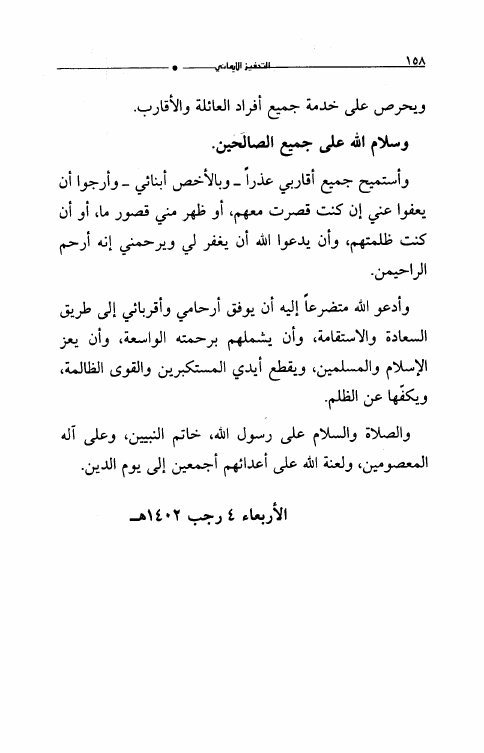 ١٥٨
التحفيز الإيماني
ويحرص على خدمة جميع أفراد العائلة والأقارب.
وسلام الله على جميع الصالحين.
وأستميح جميع أقاربي عذراً ـ وبالأخص أبنائي ـ وأرجوا أن
يعفوا عني إن كنت قصرت معهم، أو ظهر مني قصور ما، أو أن
كنت ظلمتهم، وأن يدعوا الله أن يغفر لي ويرحمني إنه أرحم
الراحيمن.
وأدعو الله متضرعاً إليه أن يوفق أرحامي وأقربائي إلى طريق
السعادة والاستقامة، وأن يشملهم برحمته الواسعة، وأن يعز
الإسلام والمسلمين، ويقطع أيدي المستكبرين والقوى الظالمة،
ويكفّها عن الظلم.
والصلاة والسلام على رسول الله، خاتم النبيين، وعلى آله
المعصومين، ولعنة الله على أعدائهم أجمعين إلى يوم الدين.
الأربعاء ٤ رجب ١٤٠٢هـ